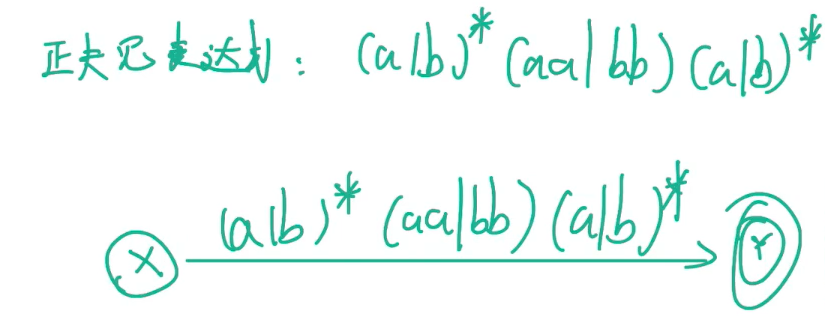 正规表达式: (a|b)* (aa|bb) (a|b)*
(a|b)* (aa|bb) (a|b)*
X Y